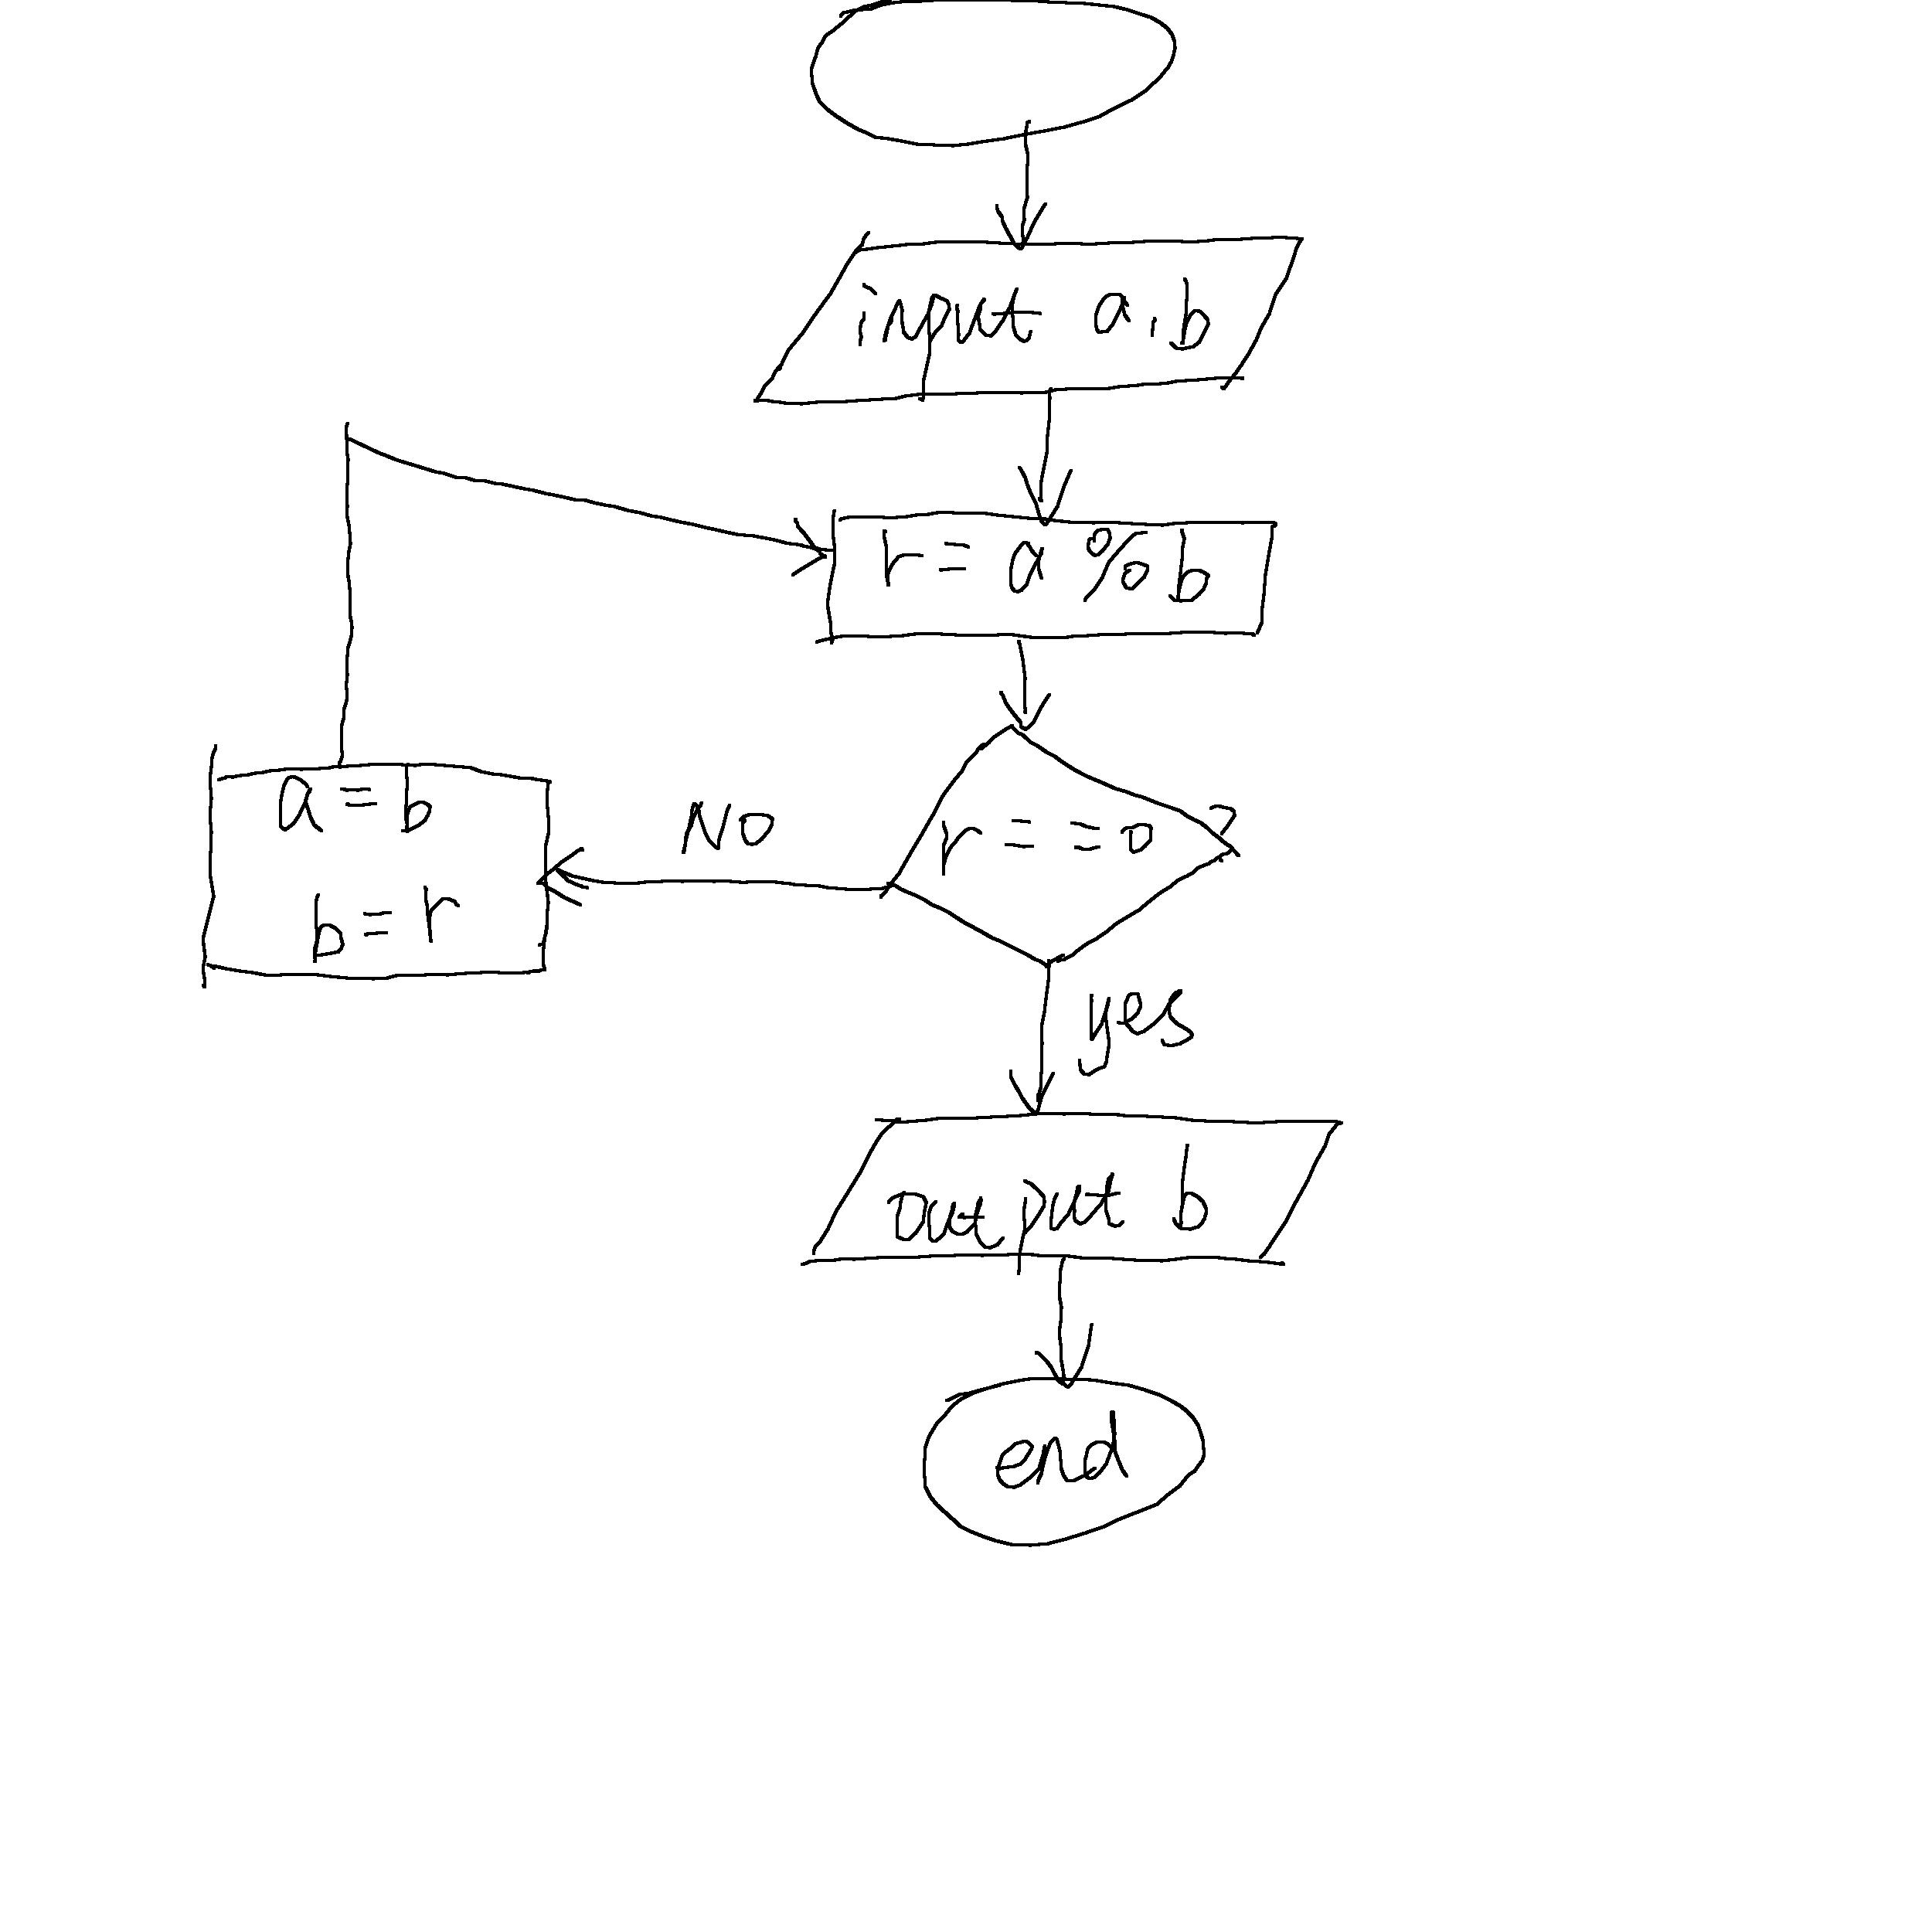 input a,b
r = a % b
r = = 0 ?
NO
a = b
b = r
yes
output b
end